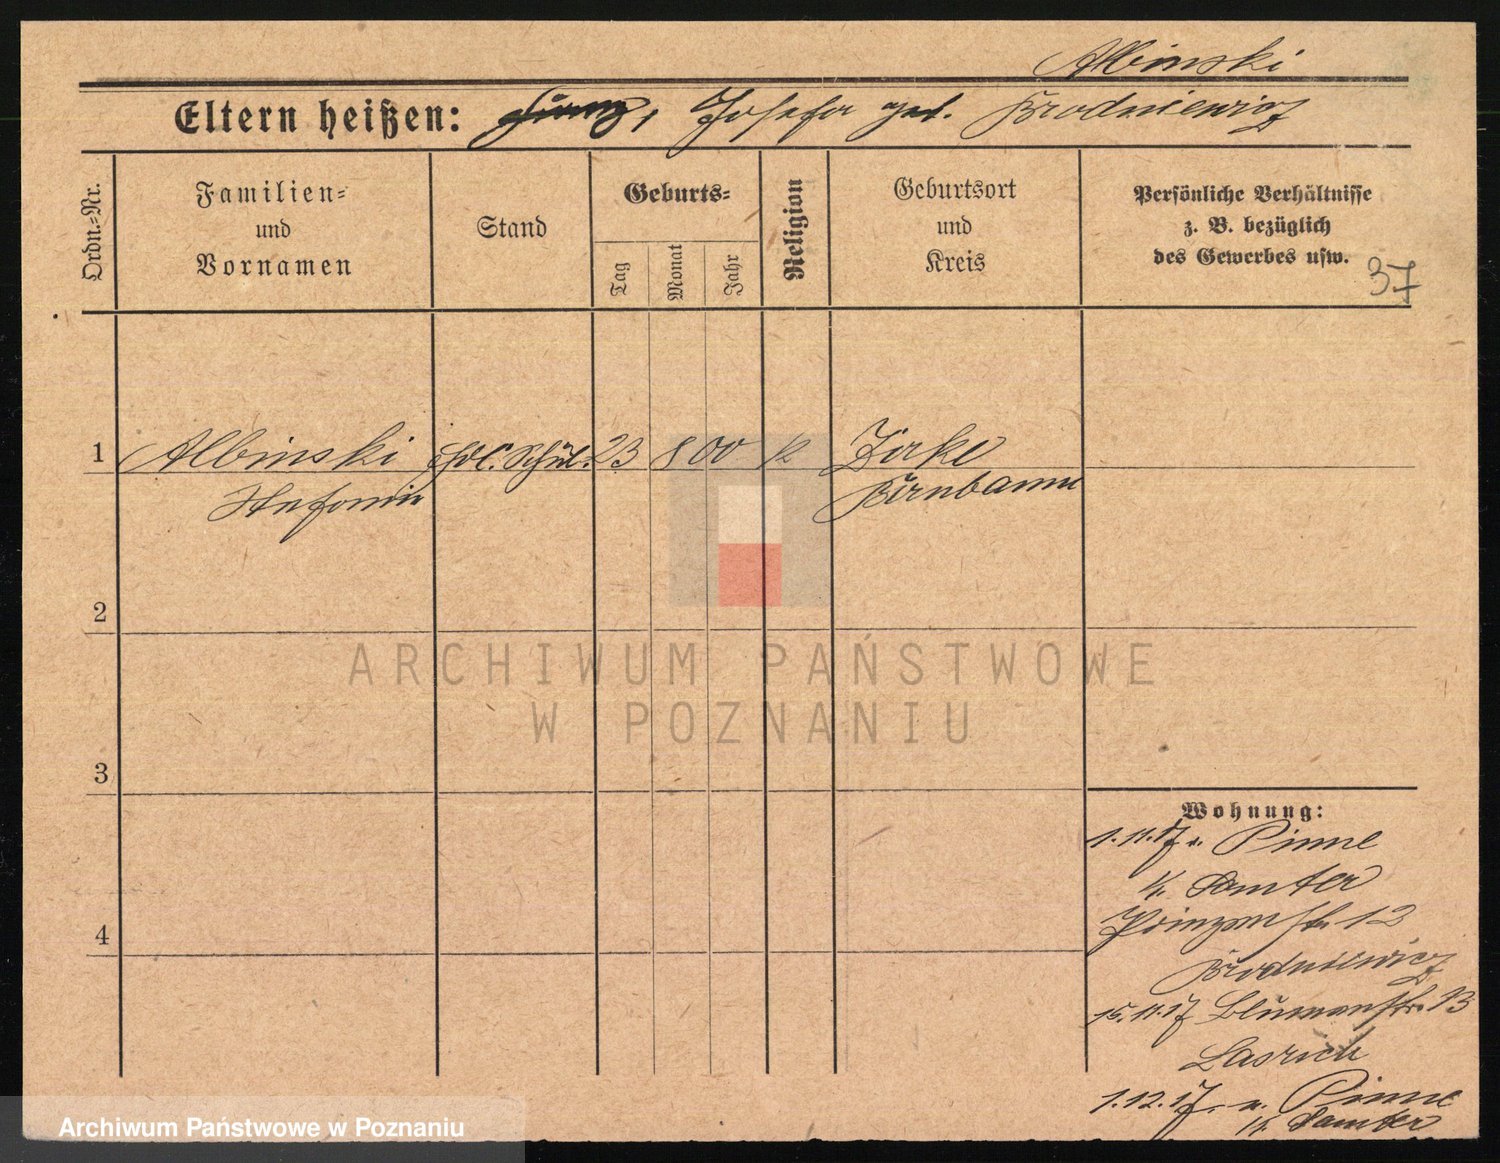 Albinski
Eltern heißen: Franz, Josefa geb. Brodniewicz
Ordn.-Nr.
Familien-
und
Vornamen
Stand
Geburts-
Tag
Monat
Jahr
Religion
Geburtsort
und
Kreis
Persönliche Verhältnisse
z. B. bezüglich
des Gewerbes usw.
37
1 Albinski Schül. 23 8 00 k Zirke
Birnbaum
2
ARCHIWUM PAŃSTWOWE
W POZNANIU
3
Wohnung:
1.11.17 n. Pinne
Samter
Prinzenstr. 12
4
Brodniewicz
15.11.17 Blumenstr. 13
1.12.17. n. Pinne
Samter
Archiwum Państwowe w Poznaniu